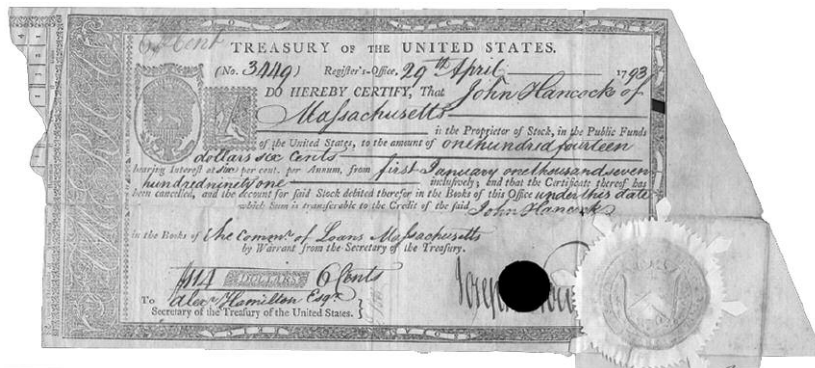 6 ⅌ Cent
TREASURY OF THE UNITED STATES.
(No. 3449) Register's-Office, 29th April 1793
I DO HEREBY CERTIFY, That John Hancock of
Massachusetts is the Proprietor of Stock, in the Public Funds
of the United States, to the amount of one hundred fourteen
dollars six Cents
bearing Interest at six per cent. per Annum, from first January one thousand seven
hundred ninety one inclusively, and that the Certificate thereof has
been cancelled, and the Account for said Stock debited therefor in the Books of this Office under this date
which Sum is transferable to the Credit of the said John Hancock
in the Books of the Commr. of Loans Massachusetts
by Warrant from the Secretary of the Treasury.
114 DOLLARS 6 Cents
To Alexr Hamilton Esqr.
Secretary of the Treasury of the United States.
Joseph